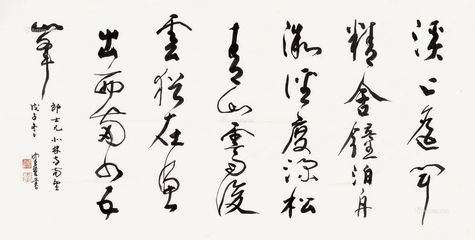 溪上遥聞
精舍鐘泊舟
微徑度深松
青山霽後
雲猶在畫
出西南四五
峯
郎士元柏林寺南望
戊子冬